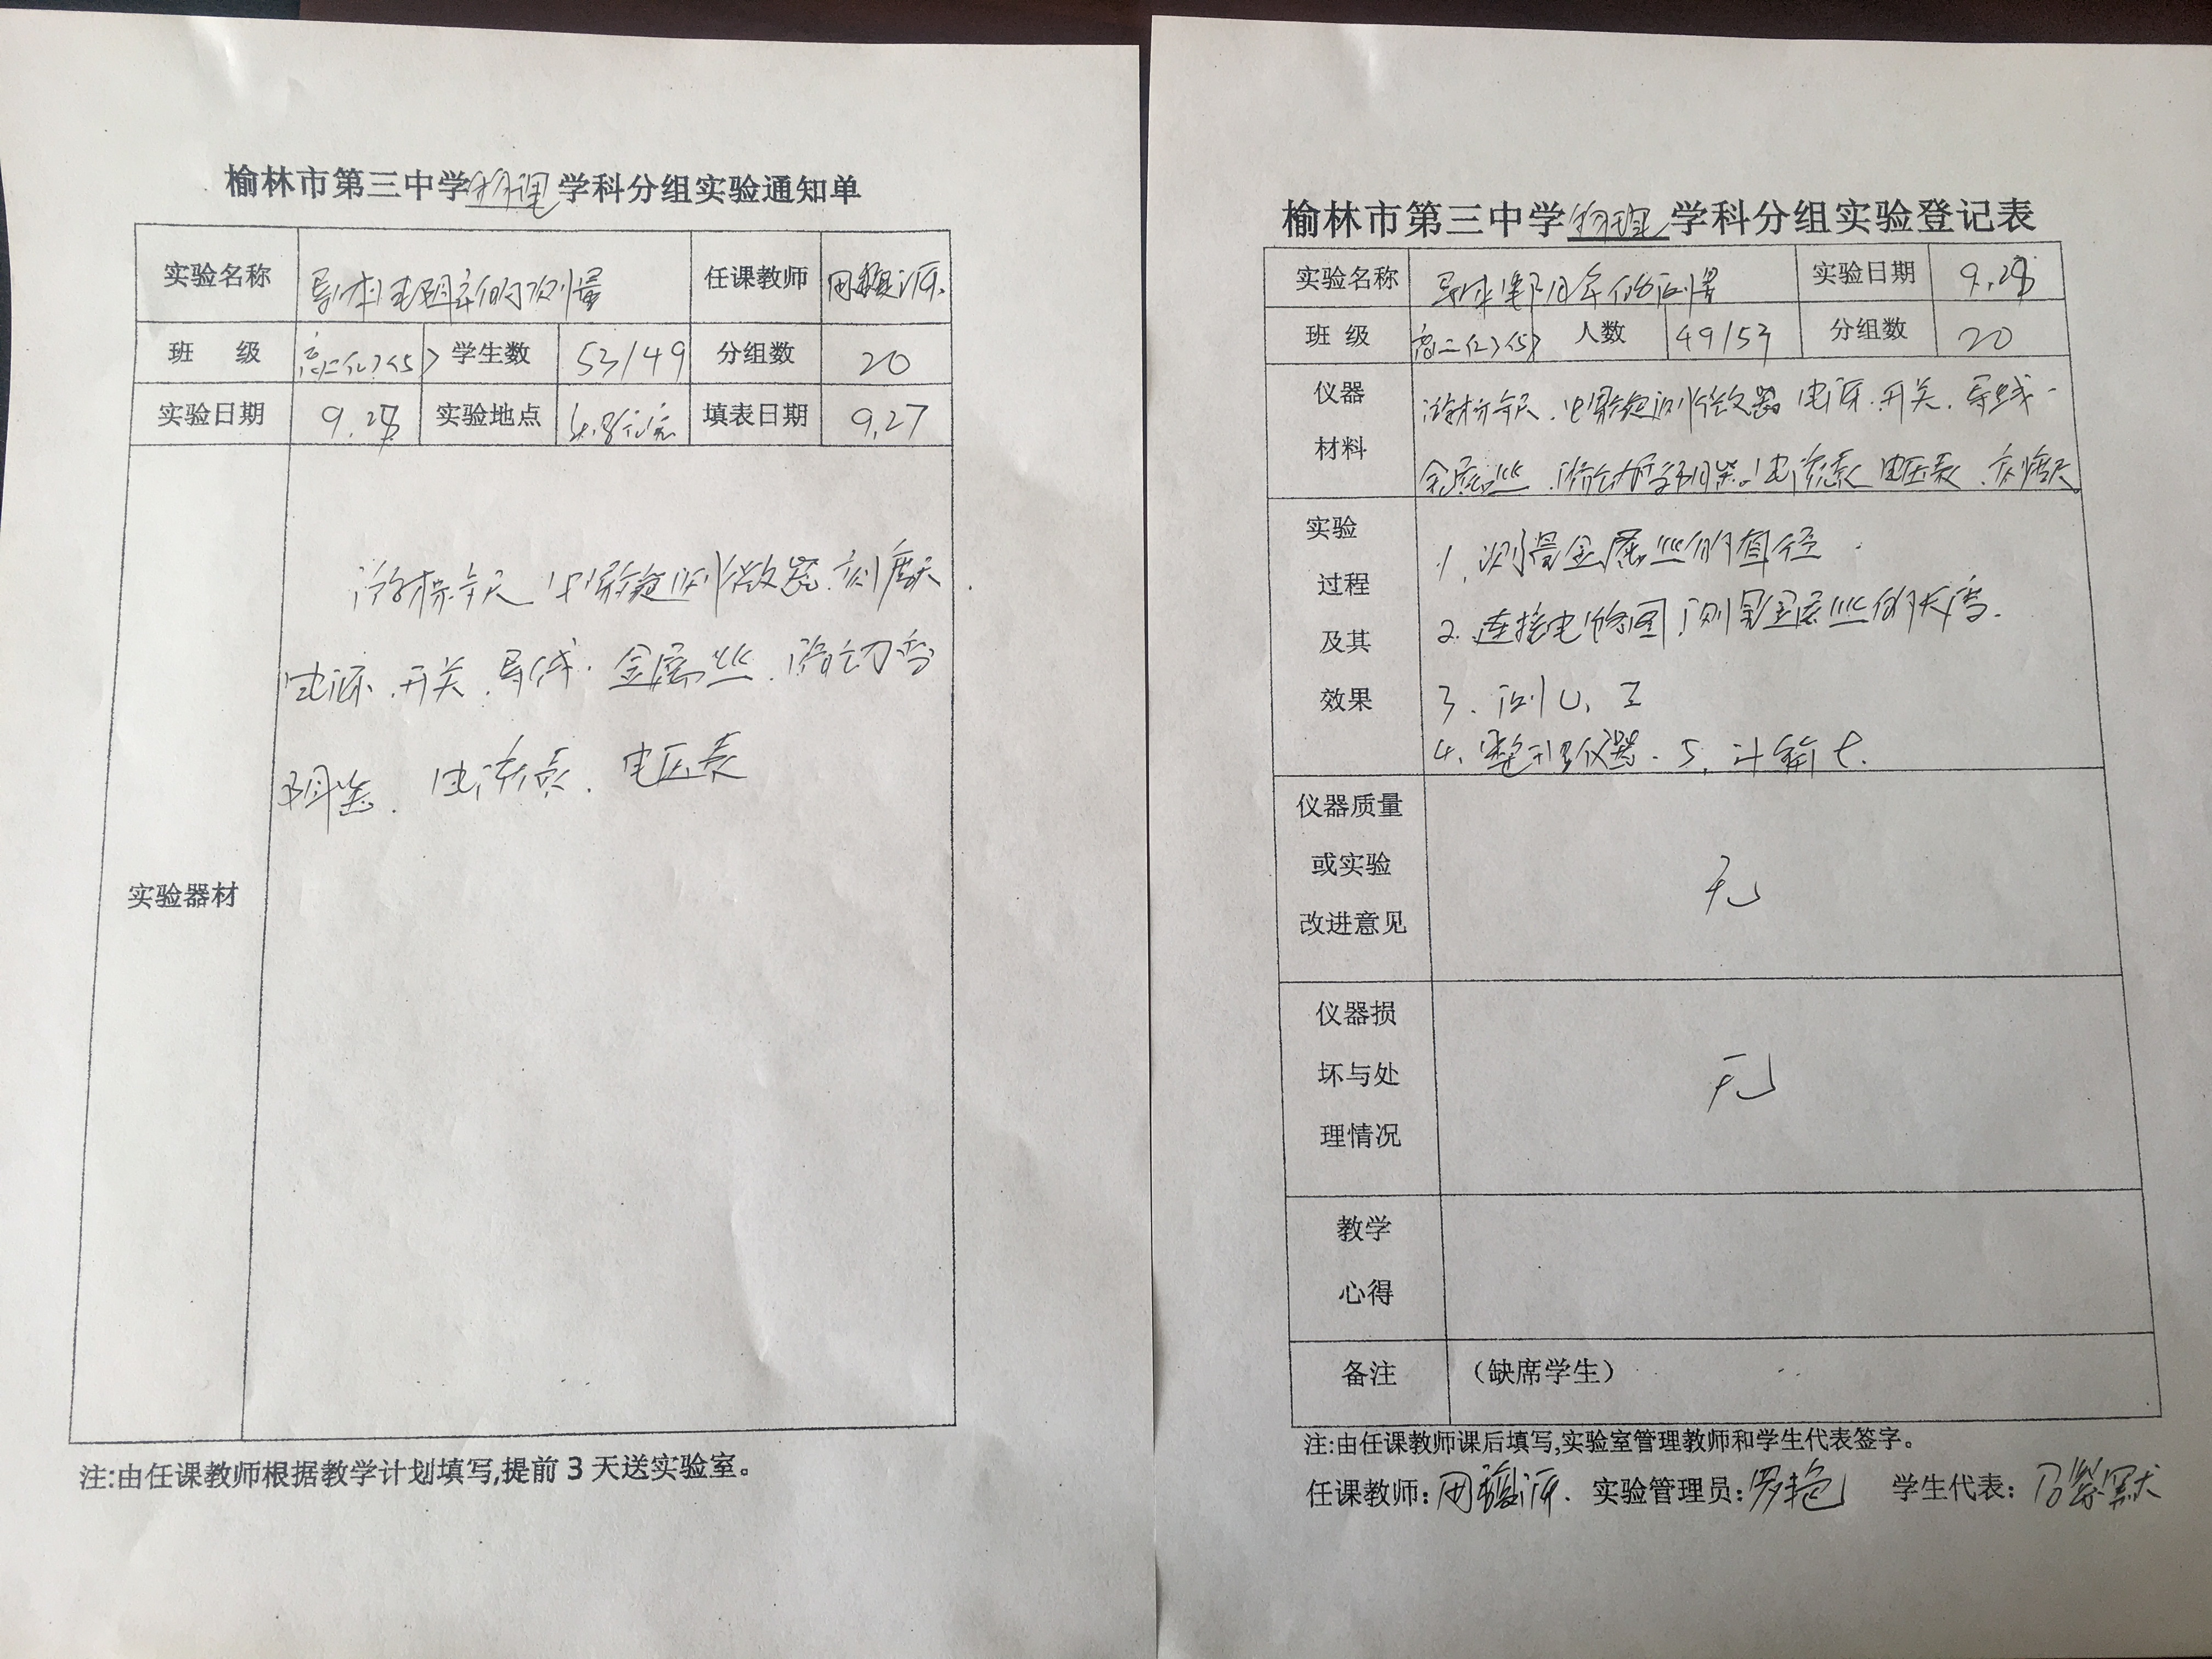 榆林市第三中学物理学科分组实验通知单
实验名称 导体电阻率的测量 任课教师
班 级 高二(2)(5) 学生数 53/49 分组数 20
实验日期 9.28 实验地点 填表日期 9.27
实验器材
游标卡尺 螺旋测微器、刻度尺、
电源、开关、导线、金属丝、滑动变
阻器、电流表、电压表
注:由任课教师根据教学计划填写,提前3天送实验室。
榆林市第三中学物理学科分组实验登记表
实验名称 导体电阻率的测量 实验日期 9.28
班 级 高二(2)(5) 人数 49/53 分组数 20
仪器材料
游标卡尺、螺旋测微器 电源、开关、导线、
金属丝、滑动变阻器、电流表 电压表、刻度尺
实验过程及其效果
1、测量金属丝的直径
2、连接电路图,测量金属丝的长度.
3、测U、I
4、整理仪器. 5、计算ρ.
仪器质量或实验改进意见 无
仪器损坏与处理情况 无
教学心得
备注 （缺席学生）
注:由任课教师课后填写,实验室管理教师和学生代表签字。
任课教师: 实验管理员:罗艳 学生代表: